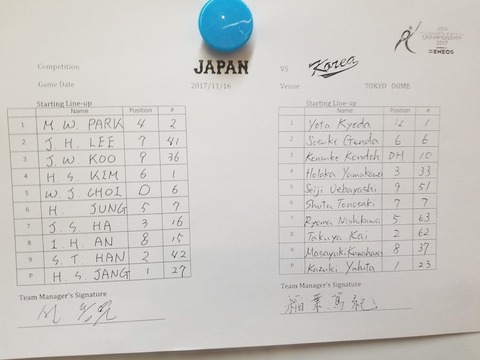 CHAMPIONSHIP
2017
ENEOS
Competition JAPAN VS Korea
Game Date 2017/11/16 Venue TOKYO DOME
Starting Line-up
Name Position #
1 M.W. PARK 4 2
2 J.H. LEE 7 41
3 J.W. KOO 9 36
4 H.S. KIM 6 1
5 W.J. CHOI 0 6
6 H. JUNG 5 7
7 J.S. HA 3 16
8 I.H. AN 8 15
9 S.T. HAN 2 42
P H.S. JANG 1 27
Team Manager's Signature
Starting Line-up
Name Position #
1 Yota Kyoda 1
2 Sosuke Genda 6 6
3 Kensuke Kondoh DH 10
4 Hotaka Yamakawa 3 33
5 Seiji Uebayashi 9 51
6 Shuta Tonosaki 7 7
7 Ryoma Nishikawa 5 63
8 Takuya Kai 2 62
9 Masayuki Kuwahara 8 37
P Kazuki Yabuta 1 23
Team Manager's Signature
稲葉篤紀